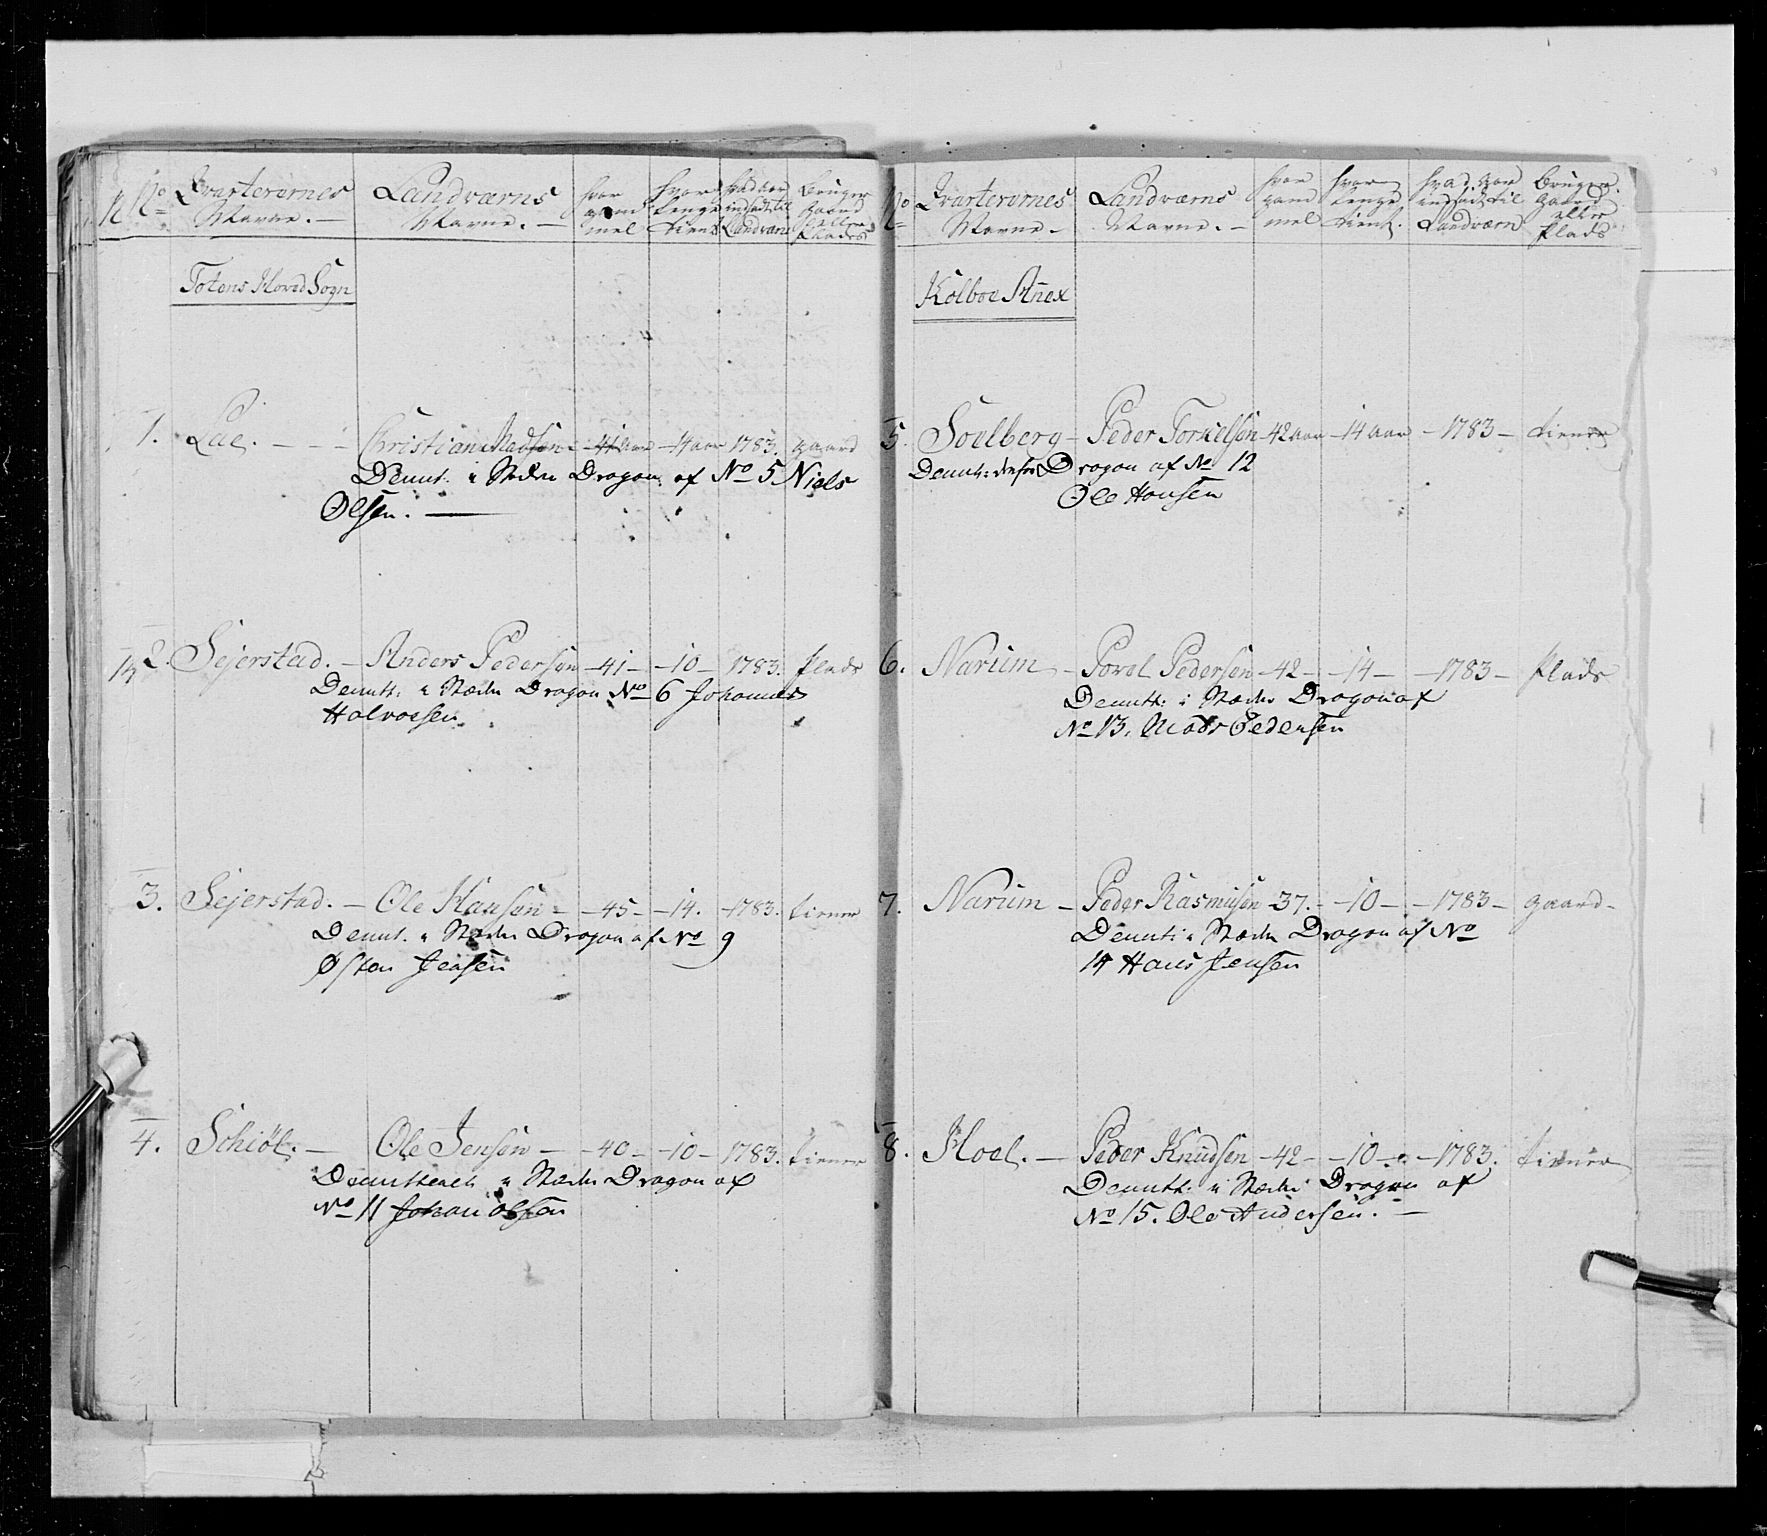 No Qvarterernes Navne. — Landværns Navne. — hvor gammel hvor lenge tient hvad aar indsadt til Landværn Bruger gaard eller Plads
Totens Hoved Sogn
1. Lae. — Christian Madsen - 41 aar - 14 aar 1783. gaard
Demit. i Stæden Dragon af No 5 Niels
Olsen. —
2. Sejerstad. — Anders Pedersen - 41 - - 10 - 1783. Plads
Demitt: i Stæden Dragon No 6 Johannes
Halvorsen
3. Sejerstad. — Ole Hansen - - 45 - - 14. - 1783. tiener
Demit. i Stæden Dragon af No 9
Østen Jensen
4. Schiøl. — Ole Jensen - - 40 - - 10 - 1783. tiener
i Stæden Dragon af
No 11 Johan Olsen
No Qvarterernes Navne - Landværns Navne. - hvor gammel hvor lenge tient. hvad aar indsadt til Landværn Bruger Gaard eller Plads
Kolboe Añex
5. Soelberg - Peder Torkelsen - 42 aar - 14 aar - 1783 - tiener
Demit: Dragon af No 12
Ole Hansen
6. Narum - Povel Pedersen - 42 - - 14 - - 1783 - Plads
Demitt: i Stæden Dragon af
No 13. Mads Pedersen
7. Narum - Peder Rasmusen - 37. - - 10 - - 1783 - gaard -
Demit: i Stæden Dragon af No
14 Hans Jensen
8. Hoel. — Peder Knudsen - 42 - - 10 - - 1783. tiener
Demitt: i Stæden Dragon af
No 15. Ole Andersen. —